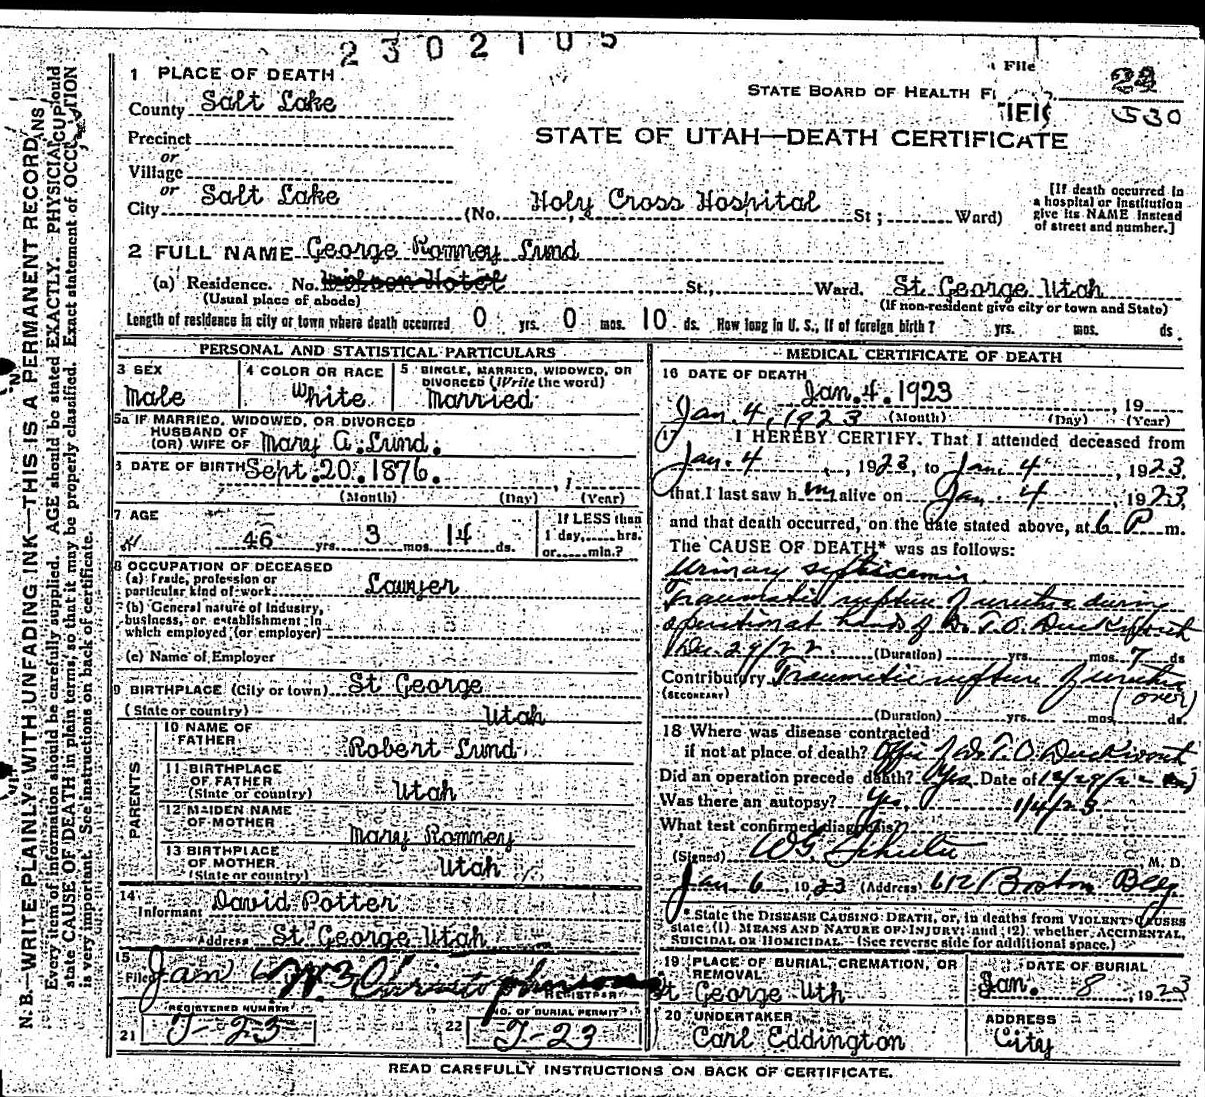 2302105
1 PLACE OF DEATH
File
22
County Salt Lake
STATE BOARD OF HEALTH
530
Precinct
STATE OF UTAH—DEATH CERTIFICATE
or
Village
or
City Salt Lake (No. Holy Cross Hospital St; Ward)
[If death occurred in a hospital or institution give its NAME instead of street and number.]
2 FULL NAME George Romney Lund
(a) Residence. No. Wilson Hotel St., Ward. St George Utah
(Usual place of abode) (If non-resident give city or town and State)
Length of residence in city or town where death occurred 0 yrs. 0 mos. 10 ds. How long in U. S., if of foreign birth? yrs. mos. ds.
PERSONAL AND STATISTICAL PARTICULARS
3 SEX Male
4 COLOR OR RACE White
5 SINGLE, MARRIED, WIDOWED, OR DIVORCED (Write the word) Married
5a IF MARRIED, WIDOWED, OR DIVORCED
HUSBAND OF
(OR) WIFE OF Mary A. Lund.
6 DATE OF BIRTH Sept. 20. 1876.
(Month) (Day) (Year)
7 AGE 46 yrs. 3 mos. 14 ds.
If LESS than 1 day, hrs. or min.?
8 OCCUPATION OF DECEASED
(a) Trade, profession or particular kind of work Lawyer
(b) General nature of industry, business, or establishment in which employed (or employer)
(c) Name of Employer
9 BIRTHPLACE (City or town) St George
(State or country) Utah
PARENTS
10 NAME OF FATHER Robert Lund
11 BIRTHPLACE OF FATHER (State or country) Utah
12 MAIDEN NAME OF MOTHER Mary Romney
13 BIRTHPLACE OF MOTHER (State or country) Utah
14 Informant David Potter
Address St George Utah
15 Filed Jan 6
REGISTRAR
REGISTERED NUMBER
NO. OF BURIAL PERMIT
21 J-23
22 J-23
MEDICAL CERTIFICATE OF DEATH
16 DATE OF DEATH Jan. 4. 1923
Jan. 4, 1923 , 19
(Month) (Day) (Year)
17 I HEREBY CERTIFY. That I attended deceased from
Jan. 4, 1923, to Jan. 4, 1923,
that I last saw him alive on Jan 4 1923,
and that death occurred, on the date stated above, at 6 P m.
The CAUSE OF DEATH* was as follows:
Urinary septicemia
Traumatic rupture of urethra during
operation at hands of Dr. T. O. Duckworth
Dec. 29/22 (Duration) yrs. mos. 7 ds
Contributory Traumatic rupture of urethra
(SECONDARY) (over)
(Duration) yrs. mos. ds.
18 Where was disease contracted
if not at place of death? Office of Dr. T. O. Duckworth
Did an operation precede death? Yes Date of 12/29/22
Was there an autopsy? Yes. 1/4/23
What test confirmed diagnosis?
(Signed) M. D.
Jan 6 1923 (Address) 612 Boston Bldg
* State the DISEASE CAUSING DEATH, or, in deaths from VIOLENT CAUSES
state (1) MEANS AND NATURE OF INJURY; and (2) whether ACCIDENTAL,
SUICIDAL OR HOMICIDAL. (See reverse side for additional space.)
19 PLACE OF BURIAL, CREMATION, OR REMOVAL
St George Uth
DATE OF BURIAL
Jan. 8, 1923
20 UNDERTAKER
Carl Eddington
ADDRESS
City
READ CAREFULLY INSTRUCTIONS ON BACK OF CERTIFICATE.
N. B.—WRITE PLAINLY WITH UNFADING INK—THIS IS A PERMANENT RECORD
Every item of information should be carefully supplied. AGE should be stated EXACTLY. PHYSICIANS should
state CAUSE OF DEATH in plain terms, so that it may be properly classified. Exact statement of OCCUPATION
is very important. See instructions on back of certificate.